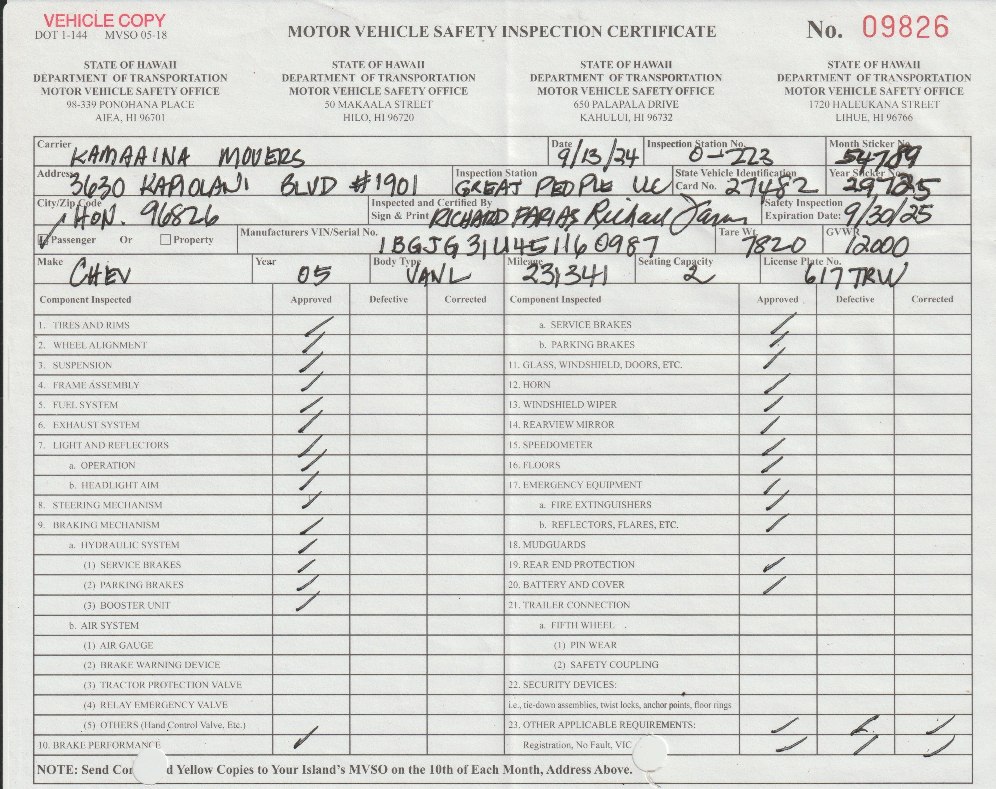 VEHICLE COPY
DOT 1-144 MVSO 05-18
MOTOR VEHICLE SAFETY INSPECTION CERTIFICATE
No. 09826
STATE OF HAWAII
DEPARTMENT OF TRANSPORTATION
MOTOR VEHICLE SAFETY OFFICE
98-339 PONOHANA PLACE
AIEA, HI 96701
STATE OF HAWAII
DEPARTMENT OF TRANSPORTATION
MOTOR VEHICLE SAFETY OFFICE
50 MAKAALA STREET
HILO, HI 96720
STATE OF HAWAII
DEPARTMENT OF TRANSPORTATION
MOTOR VEHICLE SAFETY OFFICE
650 PALAPALA DRIVE
KAHULUI, HI 96732
STATE OF HAWAII
DEPARTMENT OF TRANSPORTATION
MOTOR VEHICLE SAFETY OFFICE
1720 HALEUKANA STREET
LIHUE, HI 96766
Carrier KAMAAINA MOVERS
Date 9/13/24
Inspection Station No. 0-223
Month Sticker No. 54789
Address 3630 KAPIOLANI BLVD #1901
Inspection Station GREAT PEOPLE LLC
State Vehicle Identification Card No. 27482
Year Sticker No.
City/Zip Code HON. 96826
Inspected and Certified By
Sign & Print RICHARD FARIAS Richard Farias
Safety Inspection
Expiration Date: 9/30/25
Passenger Or Property
Manufacturers VIN/Serial No. 1BGJG31U451160987
Tare Wt. 7820
GVWR 12000
Make CHEV
Year 05
Body Type VANL
Mileage 231341
Seating Capacity 2
License Plate No. 617TRW
Component Inspected Approved Defective Corrected
1. TIRES AND RIMS
2. WHEEL ALIGNMENT
3. SUSPENSION
4. FRAME ASSEMBLY
5. FUEL SYSTEM
6. EXHAUST SYSTEM
7. LIGHT AND REFLECTORS
a. OPERATION
b. HEADLIGHT AIM
8. STEERING MECHANISM
9. BRAKING MECHANISM
a. HYDRAULIC SYSTEM
(1) SERVICE BRAKES
(2) PARKING BRAKES
(3) BOOSTER UNIT
b. AIR SYSTEM
(1) AIR GAUGE
(2) BRAKE WARNING DEVICE
(3) TRACTOR PROTECTION VALVE
(4) RELAY EMERGENCY VALVE
(5) OTHERS (Hand Control Valve, Etc.)
10. BRAKE PERFORMANCE
Component Inspected Approved Defective Corrected
a. SERVICE BRAKES
b. PARKING BRAKES
11. GLASS, WINDSHIELD, DOORS, ETC.
12. HORN
13. WINDSHIELD WIPER
14. REARVIEW MIRROR
15. SPEEDOMETER
16. FLOORS
17. EMERGENCY EQUIPMENT
a. FIRE EXTINGUISHERS
b. REFLECTORS, FLARES, ETC.
18. MUDGUARDS
19. REAR END PROTECTION
20. BATTERY AND COVER
21. TRAILER CONNECTION
a. FIFTH WHEEL
(1) PIN WEAR
(2) SAFETY COUPLING
22. SECURITY DEVICES:
i.e., tie-down assemblies, twist locks, anchor points, floor rings
23. OTHER APPLICABLE REQUIREMENTS:
Registration, No Fault, VIC
NOTE: Send Yellow Copies to Your Island's MVSO on the 10th of Each Month, Address Above.